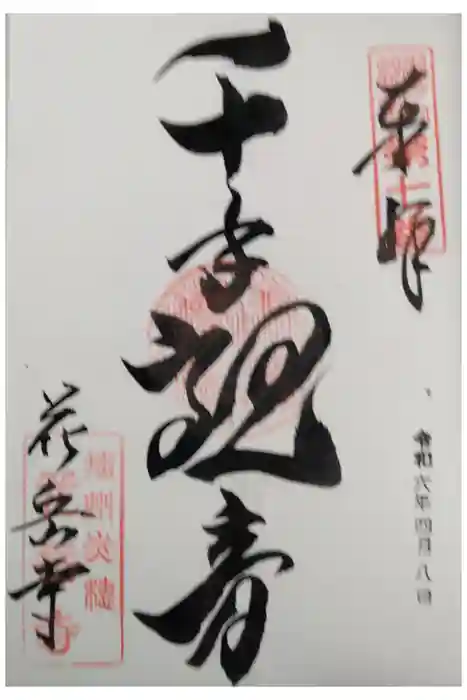 奉拝
令和六年四月八日
千手観音
播州赤穂
花岳寺